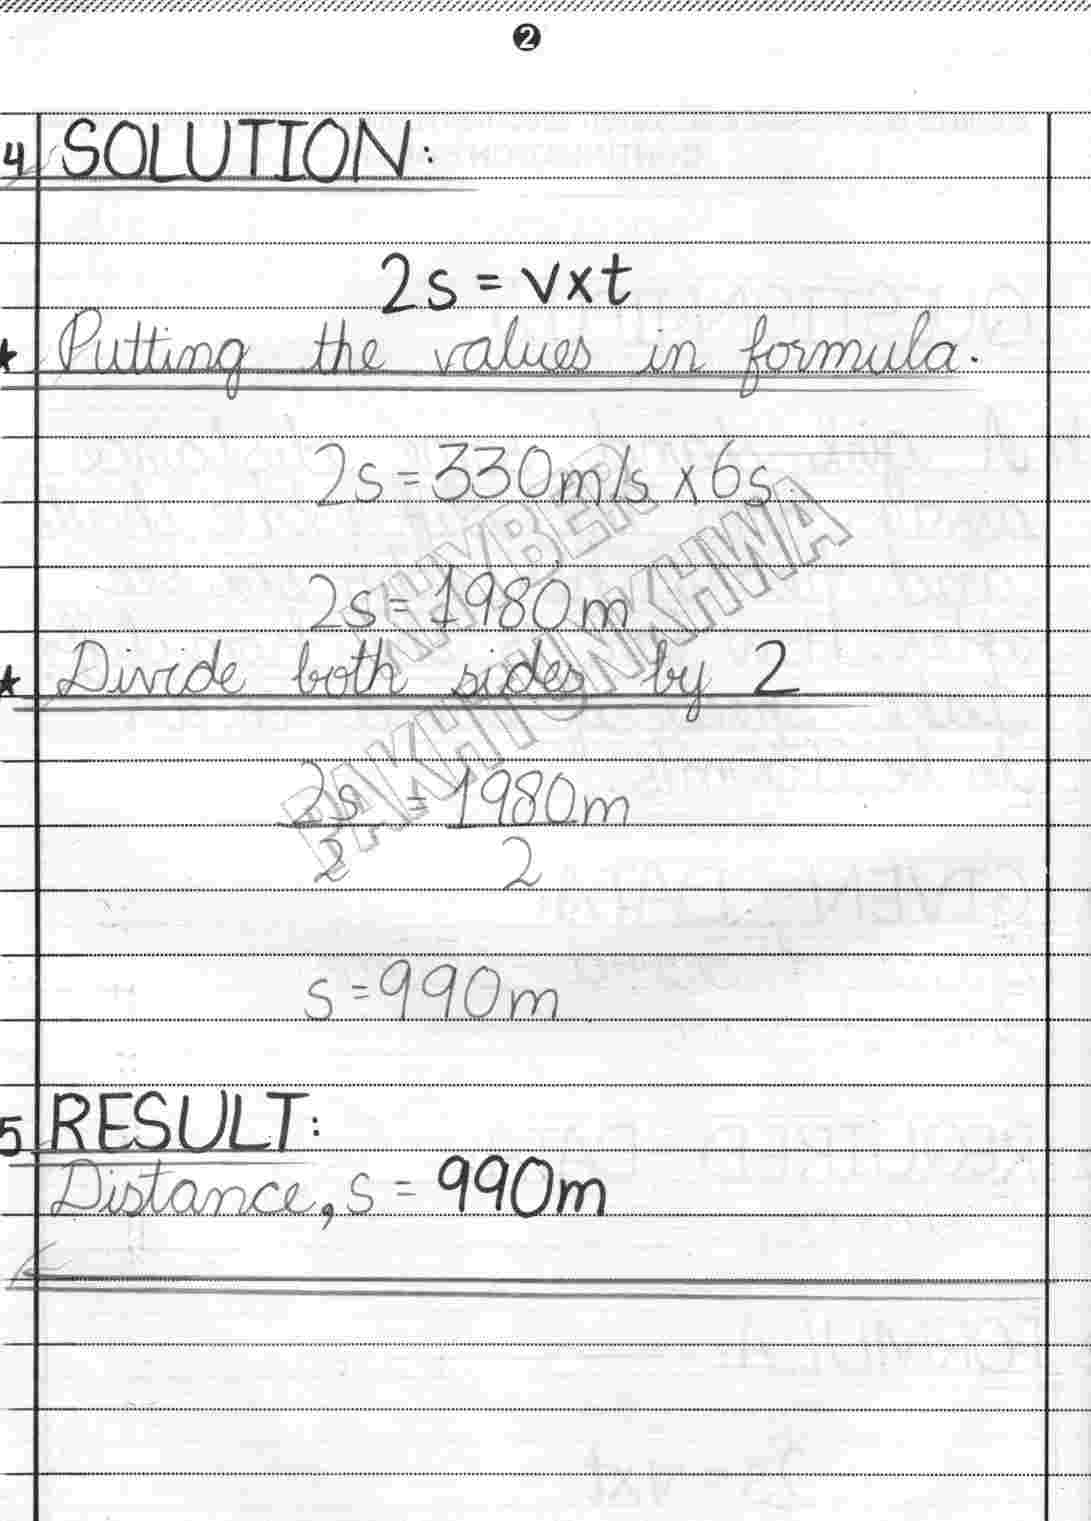 2
4 SOLUTION:
2s = v×t
★ Putting the values in formula.
2s = 330m/s × 6s.
2s = 1980m
★ Divide both sides by 2
2s = 1980m
2 2
s = 990m
5 RESULT:
Distance, s = 990m
KHYBER
PAKHTUNKHWA